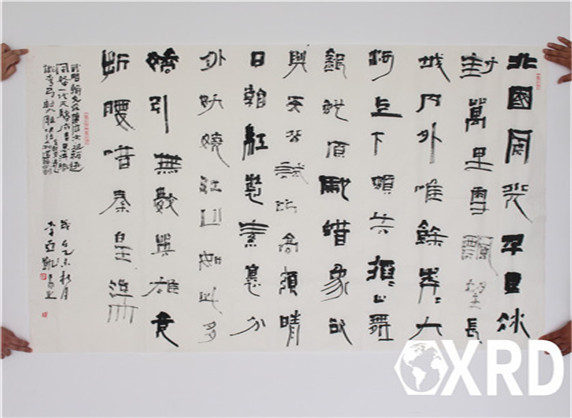 北國風光千里冰
封萬里雪飄望長
城內外唯餘莽莽大
河上下頓失滔滔山舞
銀蛇原馳蜡象欲
與天公試比高須晴
日看紅裝素裹分
外妖嬈江山如此多
嬌引無數英雄竞
折腰惜秦皇漢
一代天驕成吉思汗
乙未秋月
XRD